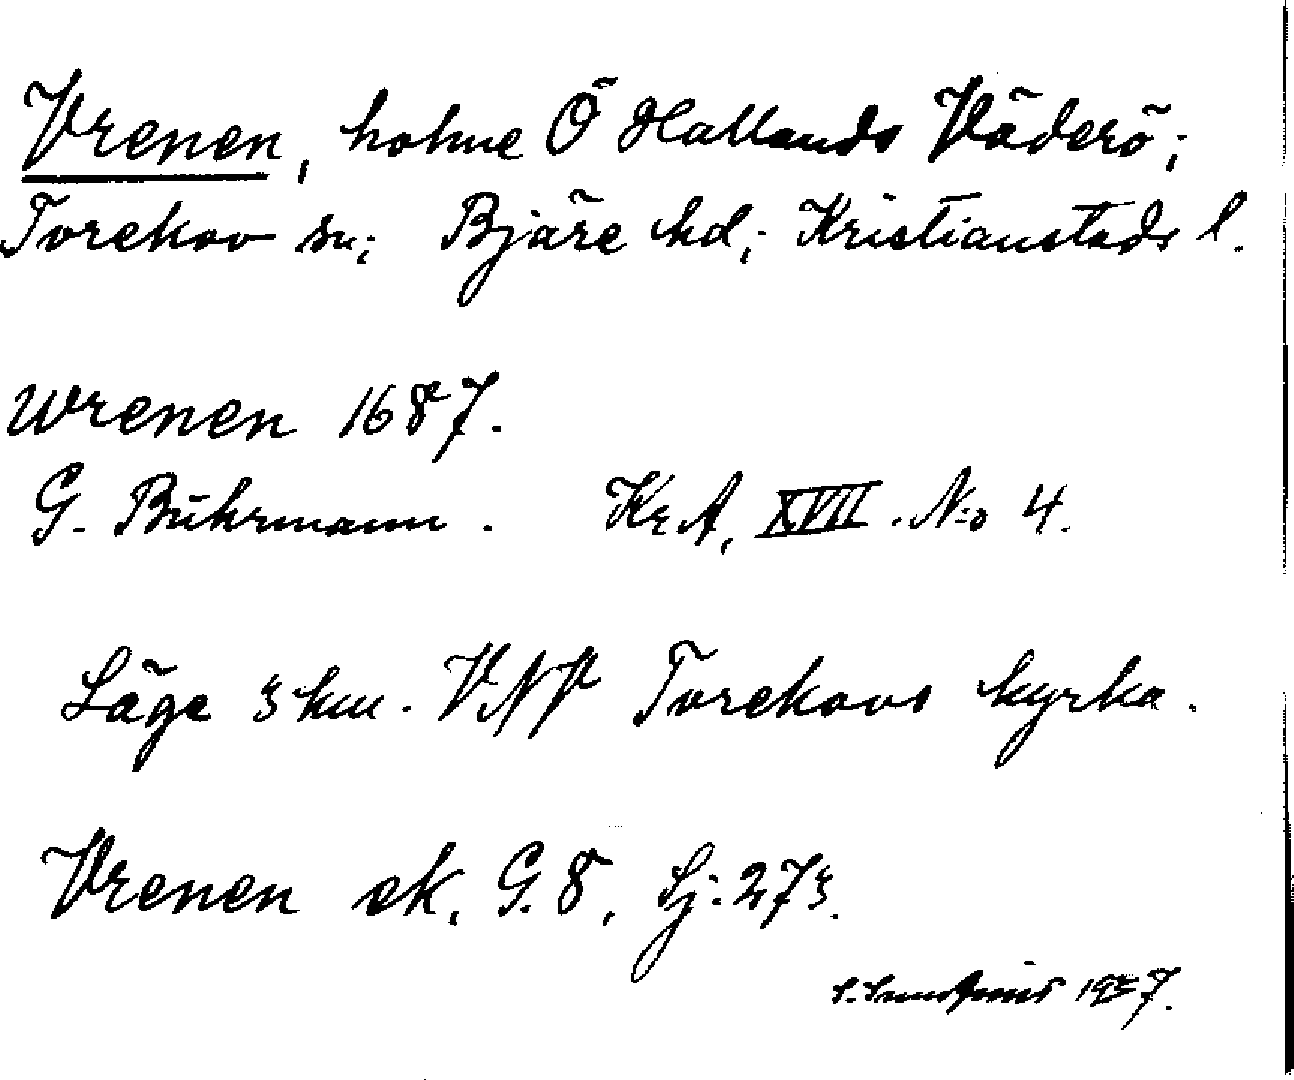 Vrenen, holme Ö Hallands Väderö;
Torekov sn; Bjäre hd; Kristianstads l.
Wrenen 1687.
G. Buhrmann. KrA, XVII. No 4.
Läge 3 km. VNV Torekovs kyrka.
Vrenen ek. G. 8, Lj. 273.
1937.